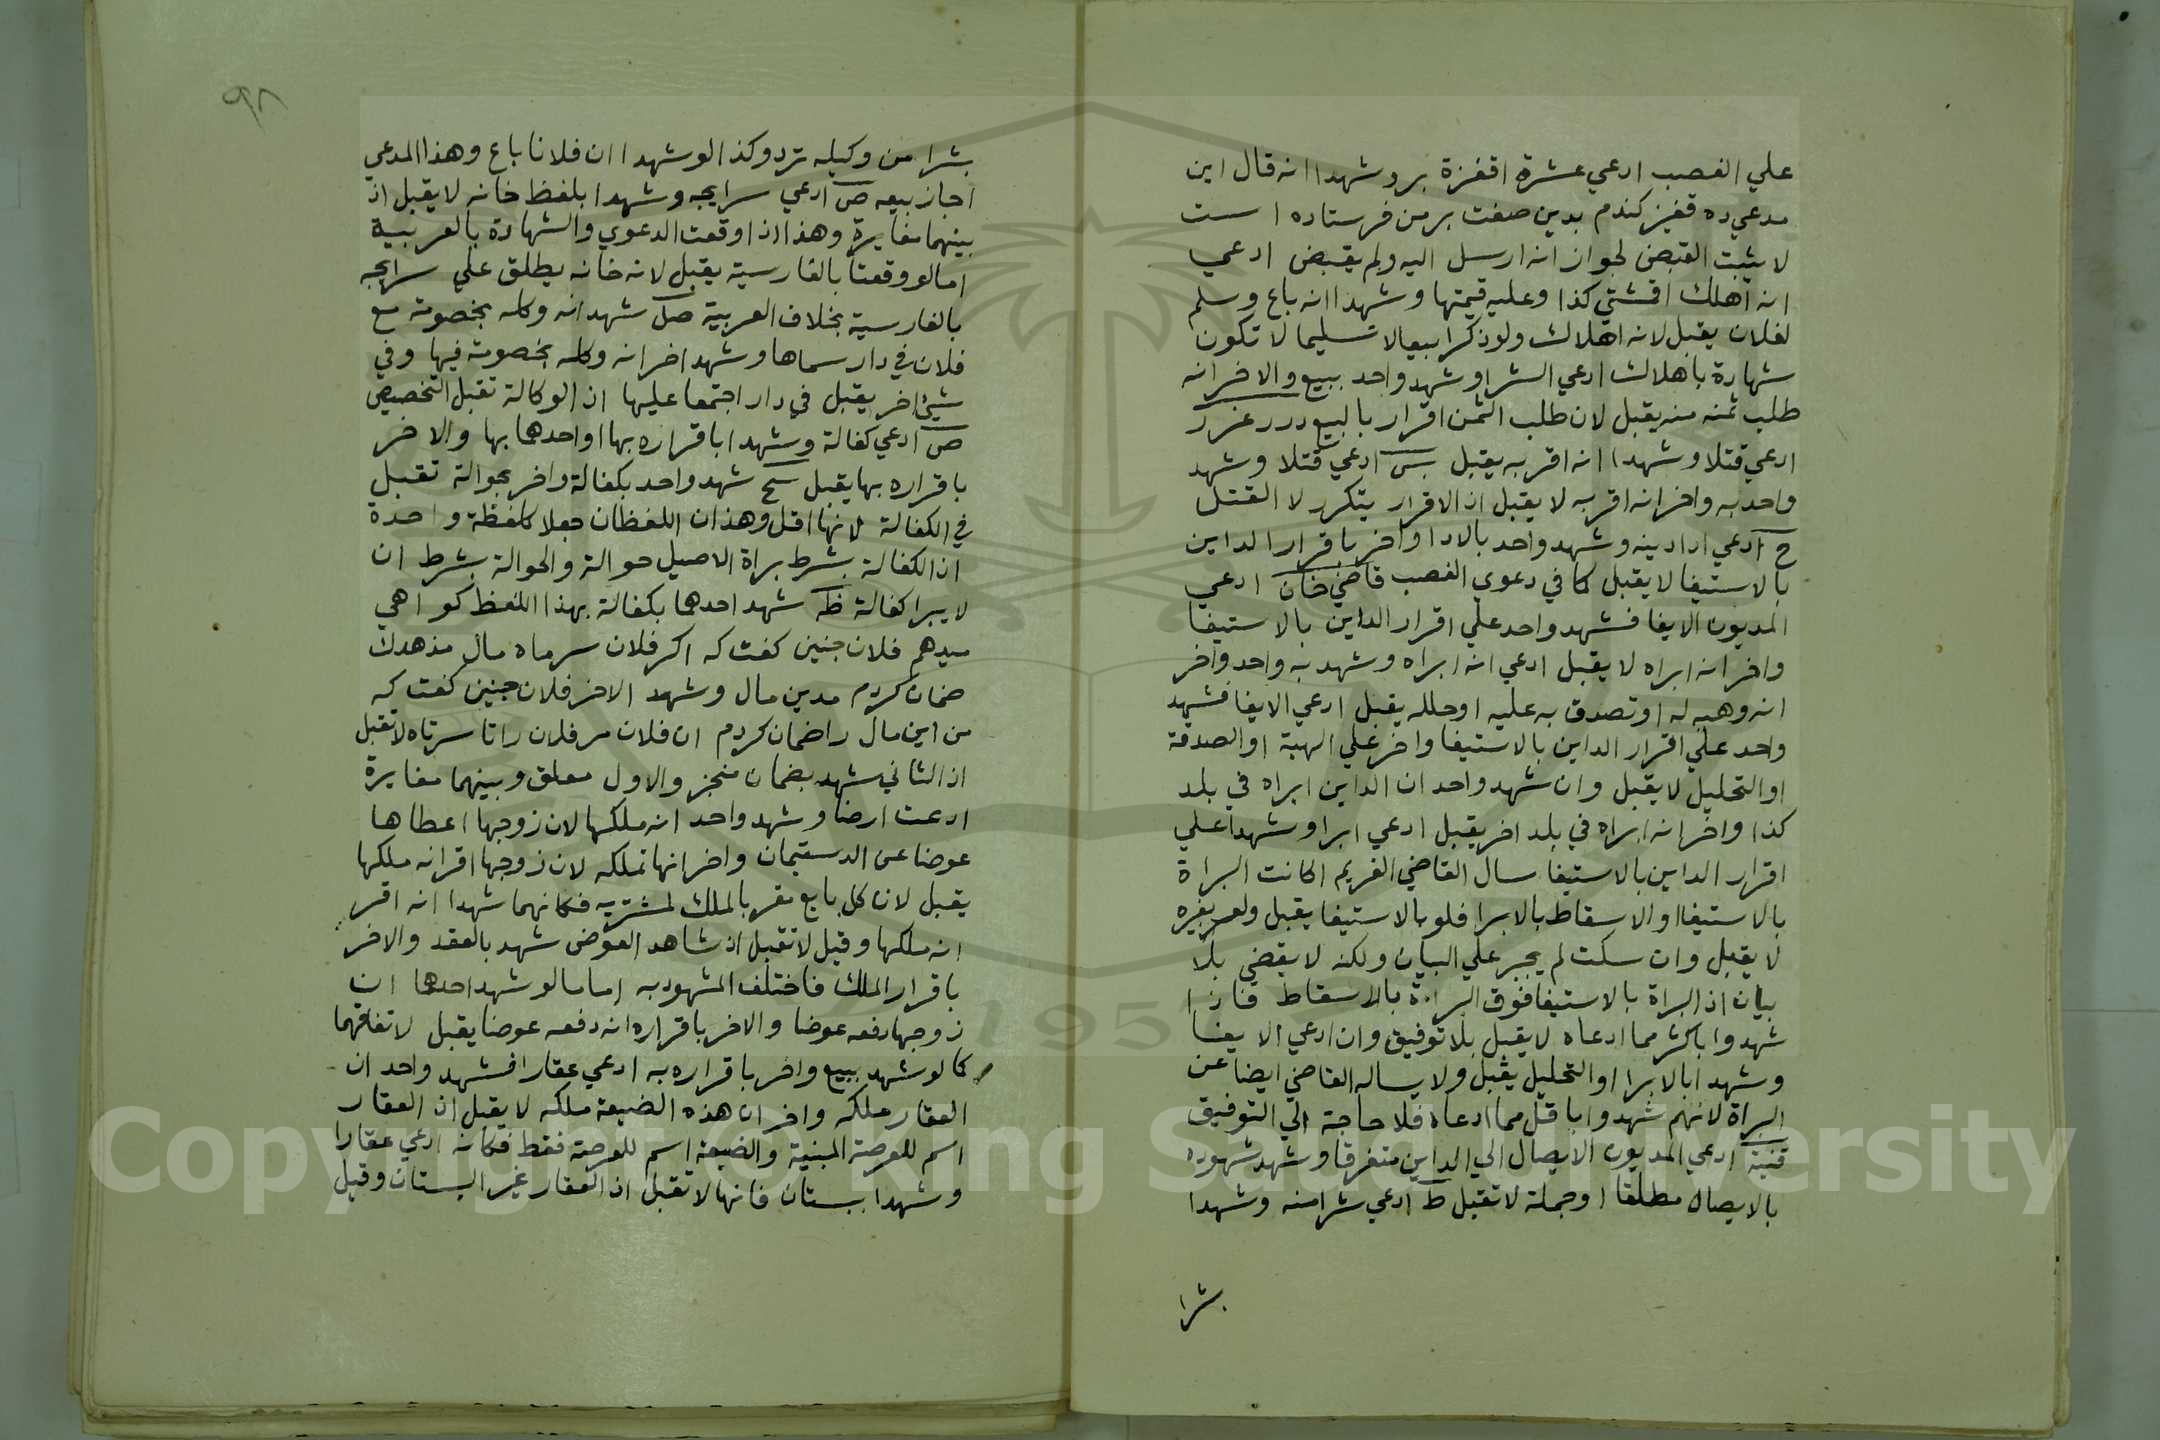 علي الغصب ادعي عشرة اقفزة بر وشهدا انه قال اين
مدعي ده قفيز كندم بدين صفت بر من فرستاده است
لا يثبت القبض لجواز انه ارسل اليه ولم يقبض ادعي
انه اهلك اقمشتي كذا وعليه قيمتها وشهدا انه باع وسلم
لفلان يقبل لانه اهلاك ولو ذكرا بيعا لا تسليما لا تكون
شهادة باهلاك ادعي الشرا وشهد واحد ببيع والاخر انه
طلب ثمنه منه يقبل لان طلب الثمن اقرار بالبيع درر غرر
ادعي قتلا وشهدا انه اقر به يقبل بس ادعي قتلا وشهد
واحد به واخر انه اقر به لا يقبل اذ الاقرار يتكرر لا القتل
ح ادعي ادا دينه وشهد واحد بالادا واخر باقرار الداين
بالاستيفا لا يقبل كما في دعوي الغصب قاضي خان ادعي
المديون الايفا فشهد واحد علي اقرار الداين بالاستيفا
واخر انه ابراه لا يقبل ادعي انه ابراه وشهد به واحد واخر
انه وهبه له او تصدق به عليه او حلله يقبل ادعي الايفا فشهد
واحد علي اقرار الداين بالاستيفا واخر علي الهبة او الصدقة
او التحليل لا يقبل وان شهد واحد ان الداين ابراه في بلد
كذا واخر انه ابراه في بلد اخر يقبل ادعي ابرا وشهدا علي
اقرار الداين بالاستيفا سال القاضي الغريم اكانت البراة
بالاستيفا او الاسقاط بالابرا فلو بالاستيفا يقبل ولو بغيره
لا يقبل وان سكت لم يجبر علي البيان ولكنه لا يقضي بلا
بيان اذ البراة بالاستيفا فوق البراة بالاسقاط فاذا
شهدوا باكثر مما ادعاه لا يقبل بلا توفيق وان ادعي الايفا
وشهدا بالابرا او التحليل يقبل ولا يساله القاضي ايضا عن
البراة لانهم شهدوا باقل مما ادعاه فلا حاجة الي التوفيق
قنية ادعي المديون الايصال الي الداين متفرقا وشهد شهوده
بالايصال مطلقا او جملة لا تقبل ط ادعي شرا منه وشهدا
بشرا
٩٨
بشرا من وكيله ترد وكذا لو شهدا ان فلانا باع وهذا المدعي
اجاز بيعه ص ادعي سرايجه وشهدا بلفظ خانه لا يقبل اذ
بينهما مغايرة وهذا اذا وقعت الدعوي والشهادة بالعربية
اما لو وقعتا بالفارسية يقبل لانه خانه يطلق علي سرايجه
بالفارسية بخلاف العربية صل شهد انه وكله بخصومة مع
فلان في دار سماها وشهد اخر انه وكله بخصومة فيها وفي
شيئ اخر يقبل في دار اجتمعا عليها اذ الوكالة تقبل التخصيص
ص ادعي كفالة وشهدا باقراره بها او احدهما بها والاخر
باقراره بها يقبل سح شهد واحد بكفالة واخر بحوالة تقبل
في الكفالة لانها اقل وهذان اللفظان جعلا كلفظة واحدة
اذ الكفالة بشرط براة الاصيل حوالة والحوالة بشرط ان
لا يبرا كفالة ظه شهد احدهما بكفالة بهذا اللفظ كواهي
ميدهم فلان جنين كفت كه اكر فلان سر ماه مال مذهدك
ضمان كردم مدين مال وشهد الاخر فلان جنين كفت كه
من اين مال را ضمان كردم ان فلان مر فلان را تا سرتاه لا تقبل
اذ الثاني شهد بضمان منجز والاول معلق وبينهما مغايرة
ادعت ارضا وشهد واحد انه ملكها لان زوجها اعطاها
عوضا عن الدستيمان واخر انها تملكه لان زوجها اقر انه ملكها
يقبل لان كل بايع مقر بالملك لمشتريه فكانهما شهدا انه اقر
انه ملكها وقيل لا تقبل اذ شاهد العوض شهد بالعقد والاخر
باقرار الملك فاختلف المشهود به اما لو شهد احدهما ان
زوجها دفعه عوضا والاخر باقراره انه دفعه عوضا يقبل لاتفاقهما
كما لو شهد ببيع واخر باقراره به ادعي عقارا فشهد واحد ان
العقار ملكه واخر ان هذه الضيعة ملكه لا يقبل اذ العقار
اسم للعرصة المبنية والضيعة اسم للعرصة فقط فكانه ادعي عقارا
وشهدا ببستان فانها لا تقبل اذ العقار غير البستان وقيل
Copyright © King Saud University
195